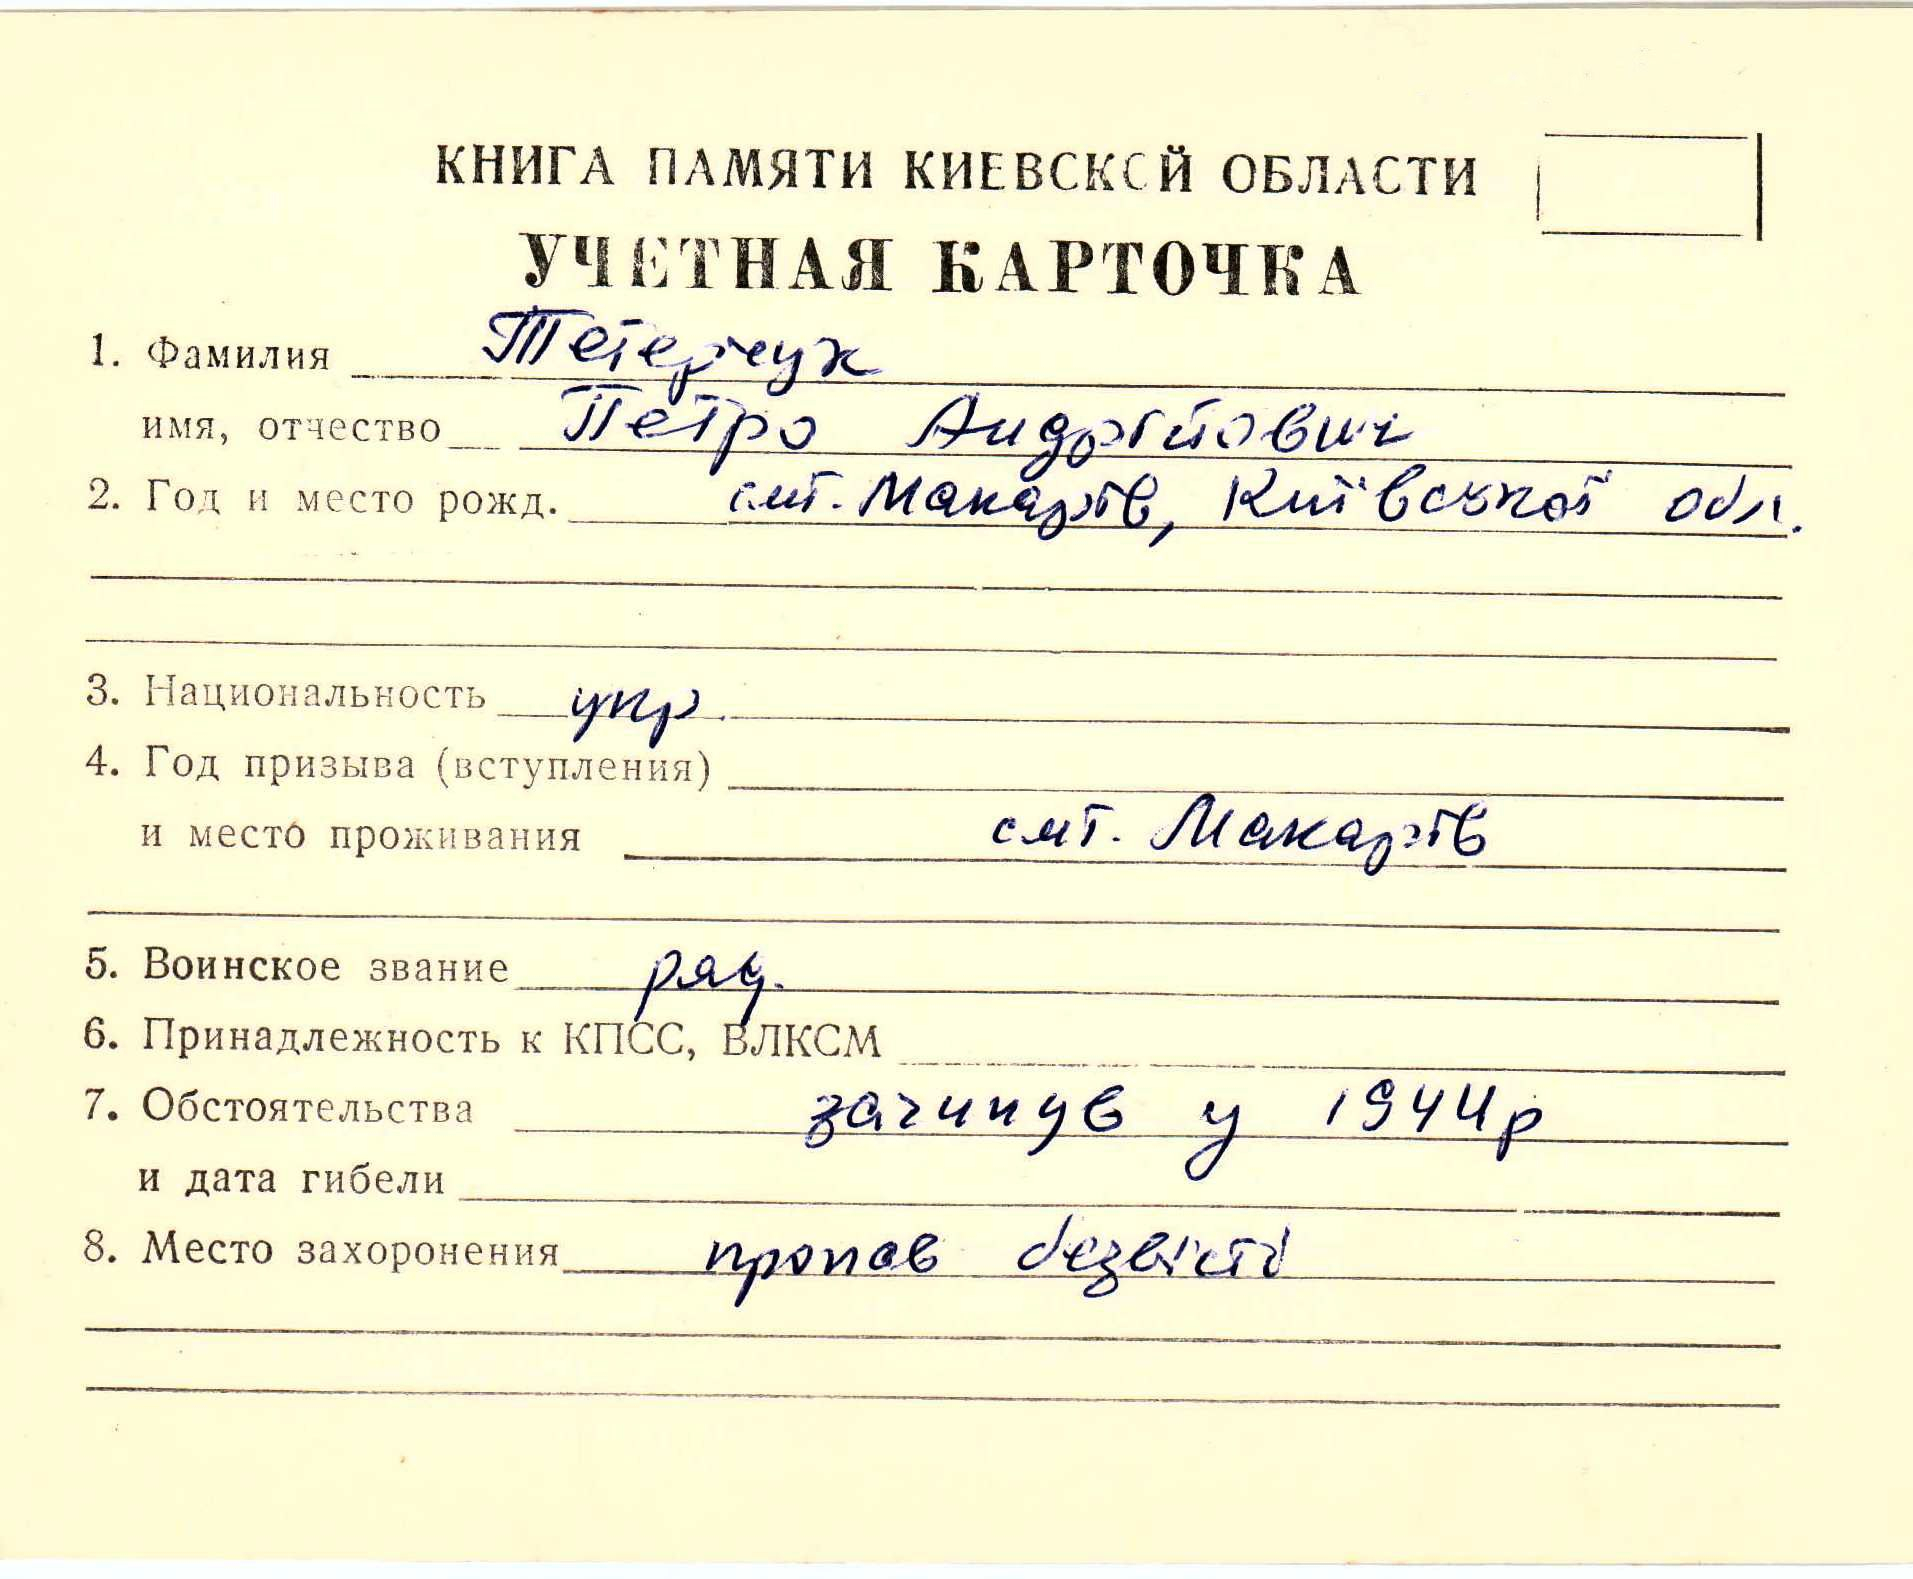 КНИГА ПАМЯТИ КИЕВСКОЙ ОБЛАСТИ
УЧЕТНАЯ КАРТОЧКА
1. Фамилия Тетерчук
имя, отчество Петро Андрійович
2. Год и место рожд. смт. Макарів, Київської обл.
3. Национальность укр.
4. Год призыва (вступления)
и место проживания смт. Макарів
5. Воинское звание ряд.
6. Принадлежность к КПСС, ВЛКСМ
7. Обстоятельства загинув у 1944р
и дата гибели
8. Место захоронения пропав безвісті